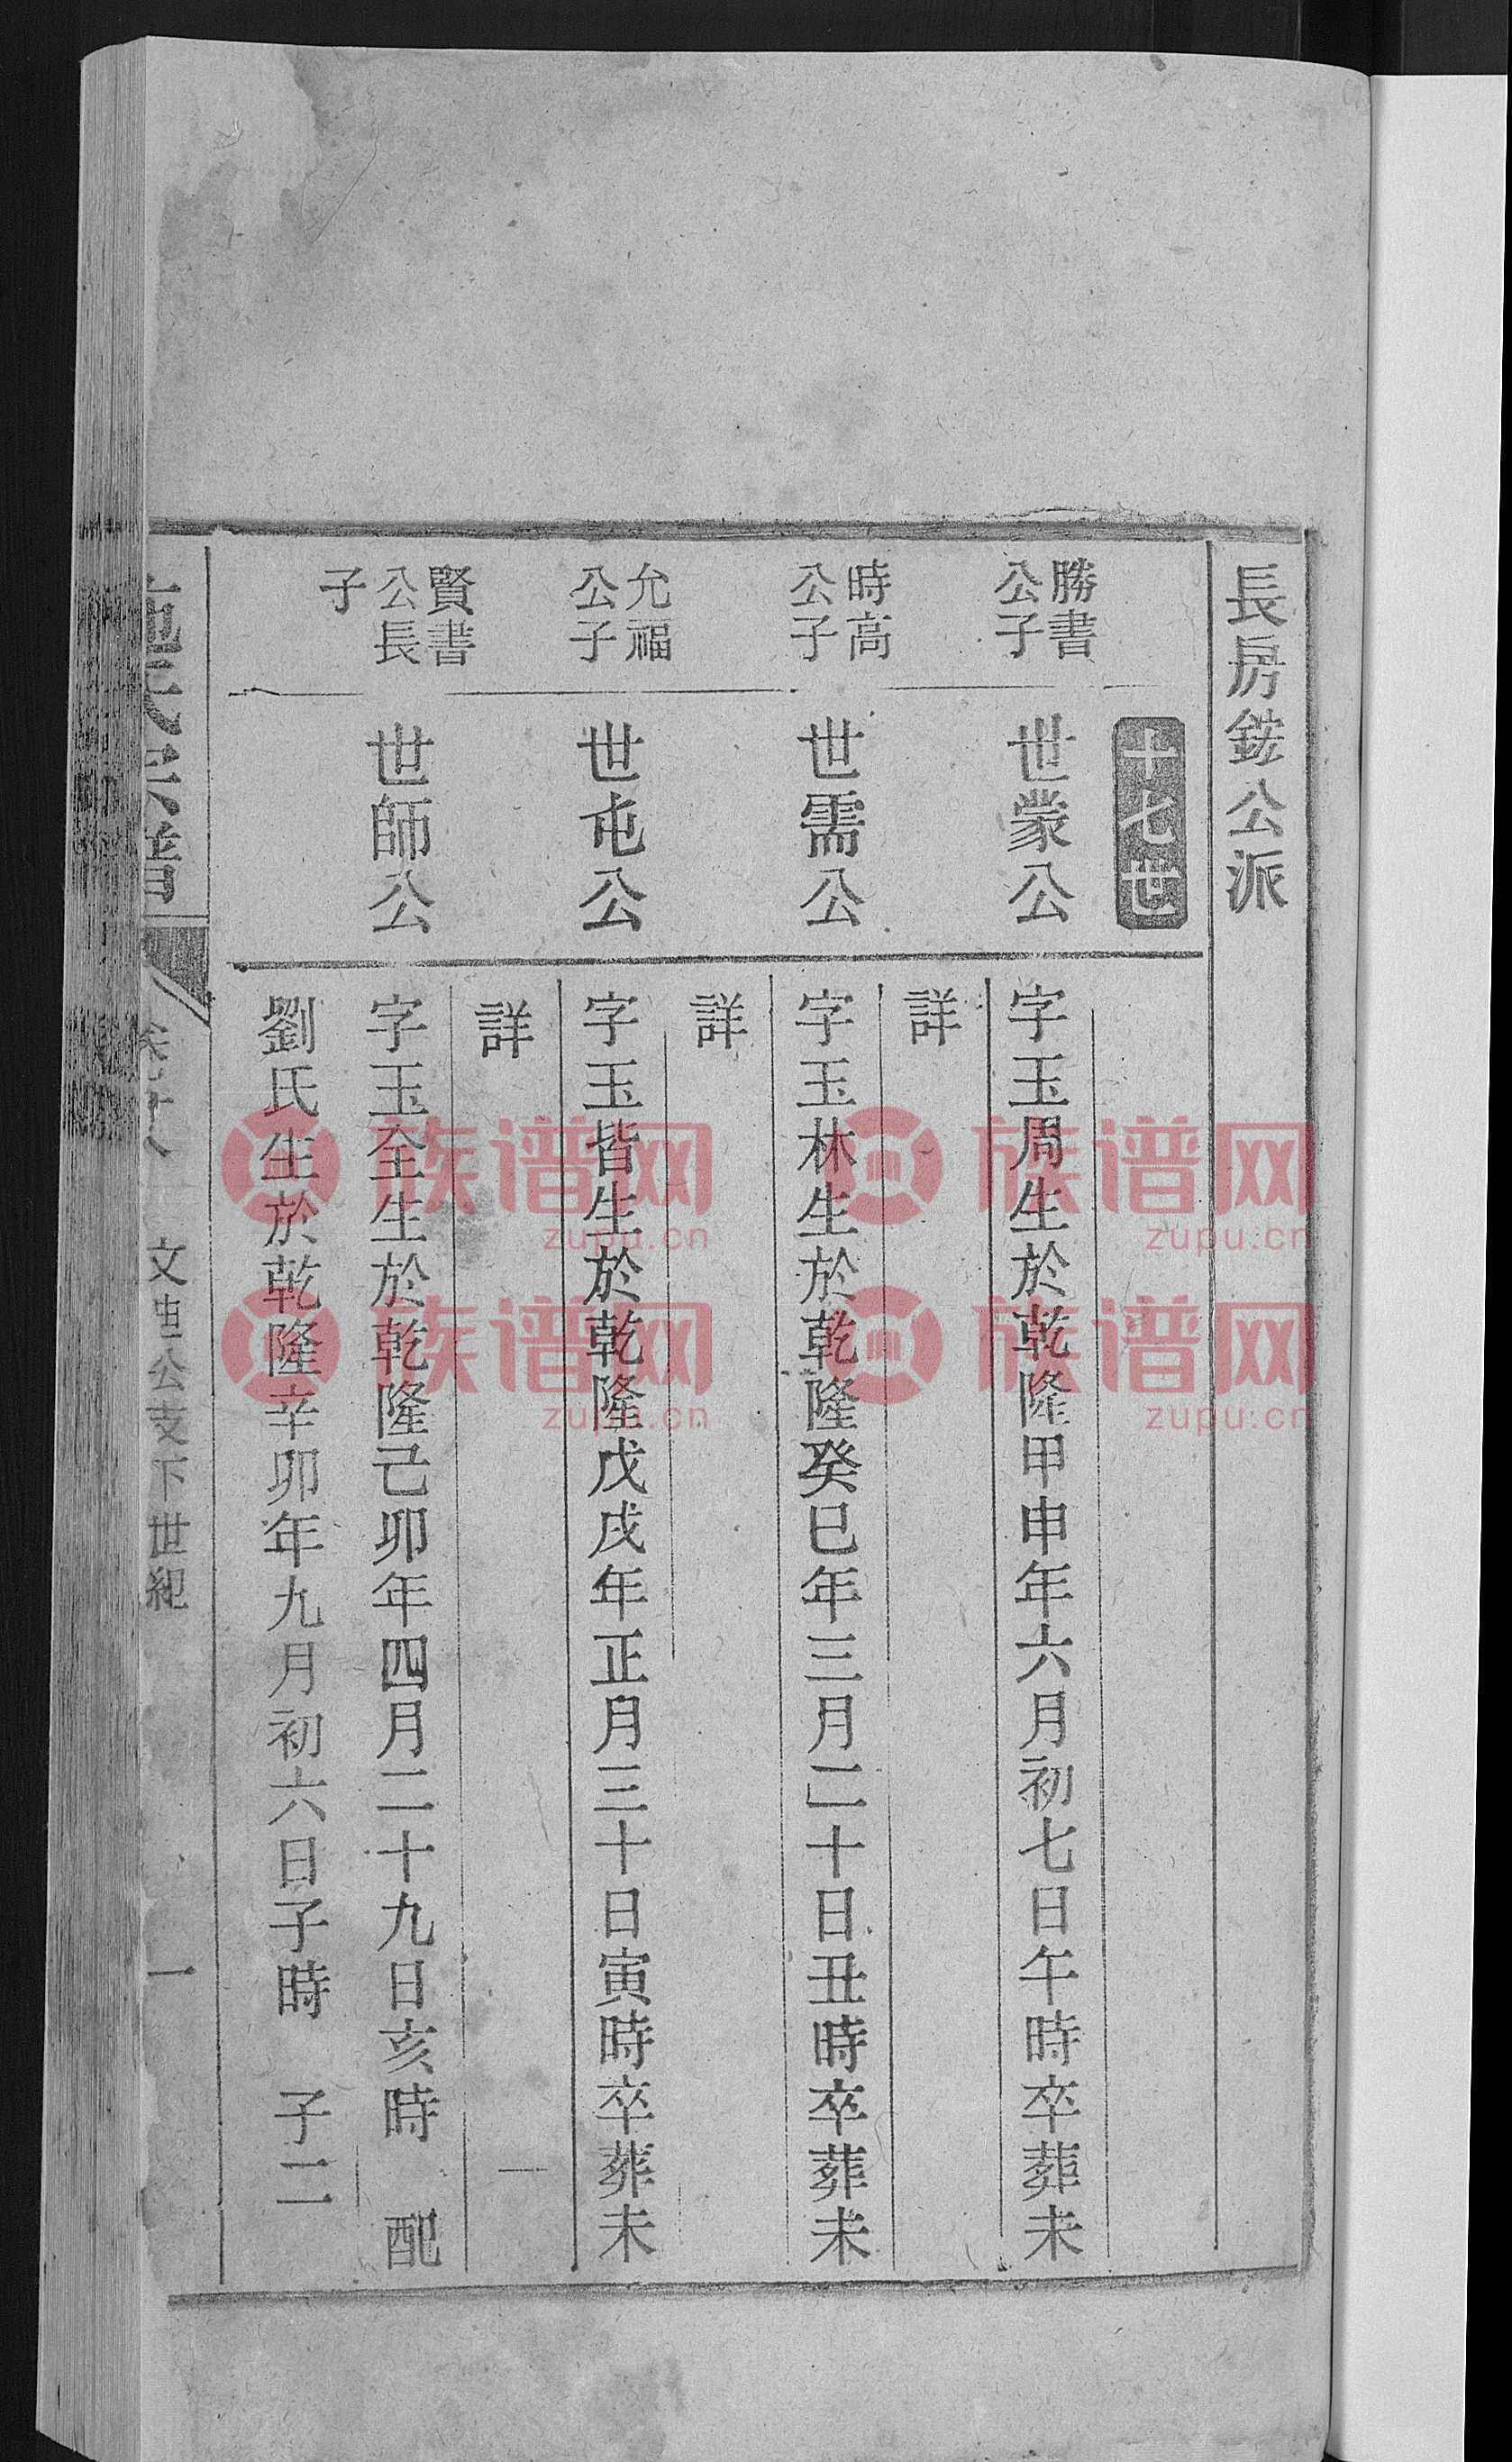 長房鋐公派
十七世
勝書
公子
世蒙公
字玉周生於乾隆甲申年六月初七日午時卒葬未
詳
時高
公子
世需公
字玉林生於乾隆癸巳年三月二十日丑時卒葬未
詳
允福
公子
世屯公
字玉皆生於乾隆戊戌年正月三十日寅時卒葬未
詳
賢書
公長
子
世師公
字玉全生於乾隆己卯年四月二十九日亥時 配
劉氏生於乾隆辛卯年九月初六日子時 子二
文 公支下世紀
一
族谱网
zupu.cn
族谱网
zupu.cn
族谱网
zupu.cn
族谱网
zupu.cn